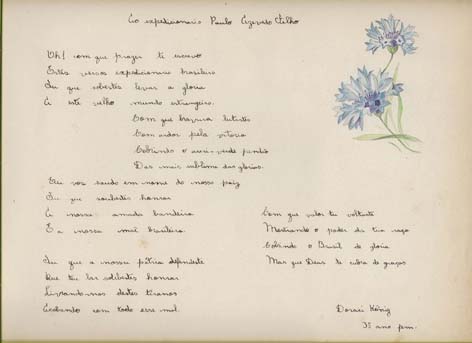 Ao expedicionario Paulo Azevedo Filho
Oh! com que prazer te escrevo
Estes versos expedicionario brasileiro
Tu que soubestes levar a gloria
A este velho mundo estrangeiro.
Com que bravura lutastes
Com ardor pela vitoria
Cobrindo o auri-verde pendão
Das mais sublime das glorias.
Eu vos saudo em nome do nosso paiz
Tu que soubestes honrar
A nossa amada bandeira
E a nossa mãi brasileira.
Tu que a nossa pátria defendeste
Que tu las soubestes honrar
Livrando-nos destes tiranos
Acabando com todo esse mal.
Com que valor tu voltaste
Mostrando o poder da tua raça
Cobrindo o Brasil de gloria
Mas que Deus te cubra de graças
Doraci König
3º ano fem.